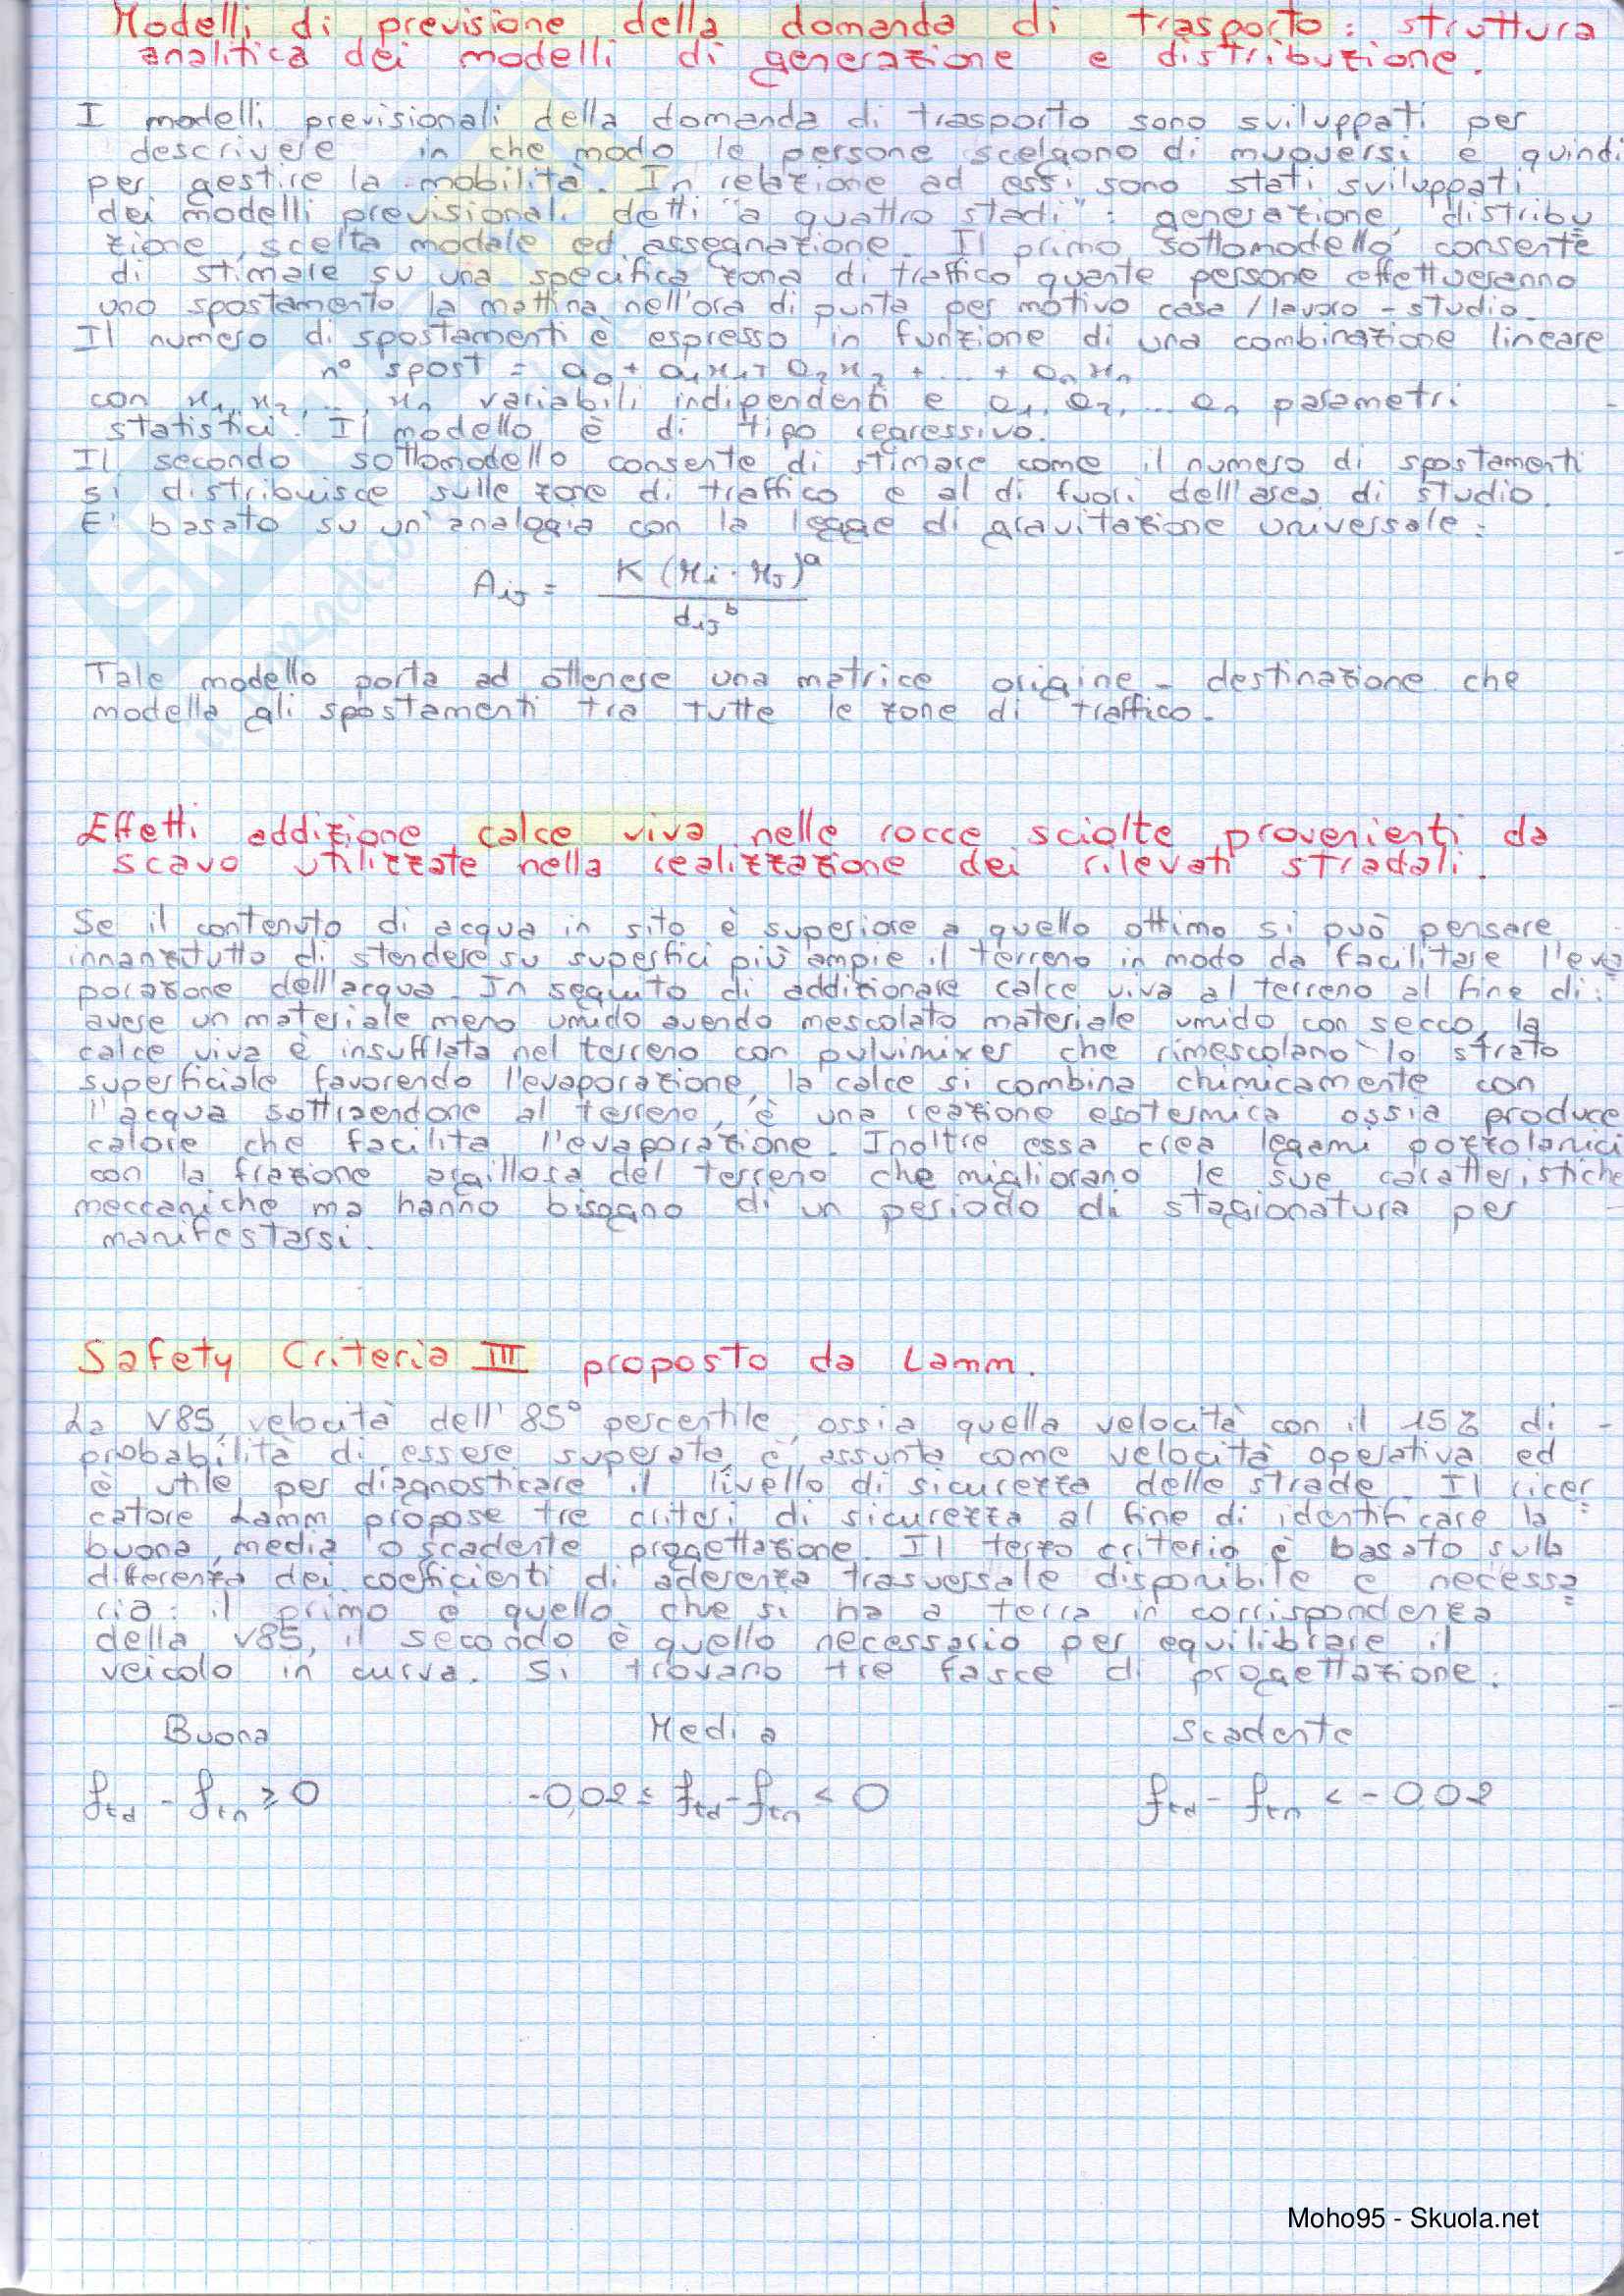 Modelli di previsione della domanda di trasporto: struttura
analitica dei modelli di generazione e distribuzione.
I modelli previsionali della domanda di trasporto sono sviluppati per
descrivere in che modo le persone scelgono di muoversi e quindi
per gestire la mobilità. In relazione ad essi sono stati sviluppati
dei modelli previsionali detti "a quattro stadi": generazione, distribu
zione, scelta modale ed assegnazione. Il primo sottomodello consente
di stimare su una specifica zona di traffico quante persone effettueranno
uno spostamento la mattina nell'ora di punta per motivo casa/lavoro-studio.
Il numero di spostamenti è espresso in funzione di una combinazione lineare
n° spost = a0 + a1x1 + a2x2 + ... + anxn
con x1, x2, ..., xn variabili indipendenti e a1, a2, ... an parametri
statistici. Il modello è di tipo regressivo.
Il secondo sottomodello consente di stimare come il numero di spostamenti
si distribuisce sulle zone di traffico e al di fuori dell'area di studio.
E' basato su un'analogia con la legge di gravitazione universale:
Aij = K (xi · xj)^a / dij^b
Tale modello porta ad ottenere una matrice origine - destinazione che
modella gli spostamenti tra tutte le zone di traffico.
Effetti addizione calce viva nelle rocce sciolte provenienti da
scavo utilizzate nella realizzazione dei rilevati stradali.
Se il contenuto di acqua in sito è superiore a quello ottimo si può pensare
innanzitutto di stendere su superfici più ampie il terreno in modo da facilitare l'eva
porazione dell'acqua. In seguito di addizionare calce viva al terreno al fine di:
avere un materiale meno umido avendo mescolato materiale umido con secco, la
calce viva è insufflata nel terreno con pulvimixer che rimescolano lo strato
superficiale favorendo l'evaporazione, la calce si combina chimicamente con
l'acqua sottraendone al terreno, è una reazione esotermica ossia produce
calore che facilita l'evaporazione. Inoltre essa crea legami pozzolanici
con la frazione argillosa del terreno che migliorano le sue caratteristiche
meccaniche ma hanno bisogno di un periodo di stagionatura per
manifestarsi.
Safety Criteria III proposto da Lamm.
La V85, velocità dell'85° percentile, ossia quella velocità con il 15% di
probabilità di essere superata è assunta come velocità operativa ed
è utile per diagnosticare il livello di sicurezza delle strade. Il ricer
catore Lamm propose tre criteri di sicurezza al fine di identificare la
buona, media o scadente progettazione. Il terzo criterio è basato sulla
differenza dei coefficienti di aderenza trasversale disponibile e necessa
ria: il primo è quello che si ha a terra in corrispondenza
della V85, il secondo è quello necessario per equilibrare il
veicolo in curva. Si trovano tre fasce di progettazione:
Buona Media Scadente
ftd - ftn ≥ 0 -0,02 ≤ ftd - ftn < 0 ftd - ftn < -0,02
Moho95 - Skuola.net